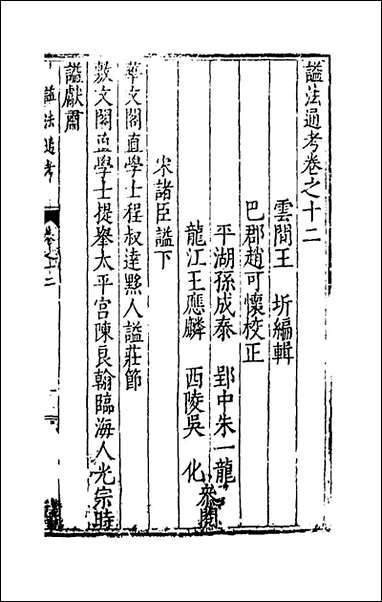 謚法通考卷之十二
雲間王　圻編輯
巴郡趙可懷校正
平湖孫成泰　郢中朱一龍
龍江王應麟　西陵吳　化
參閱
宋諸臣謚下
華文閣直學士程叔達黟人謚莊節
敷文閣直學士提舉太平宮陳良翰臨海人光宗時
謚獻肅
謚法通考
卷之十二